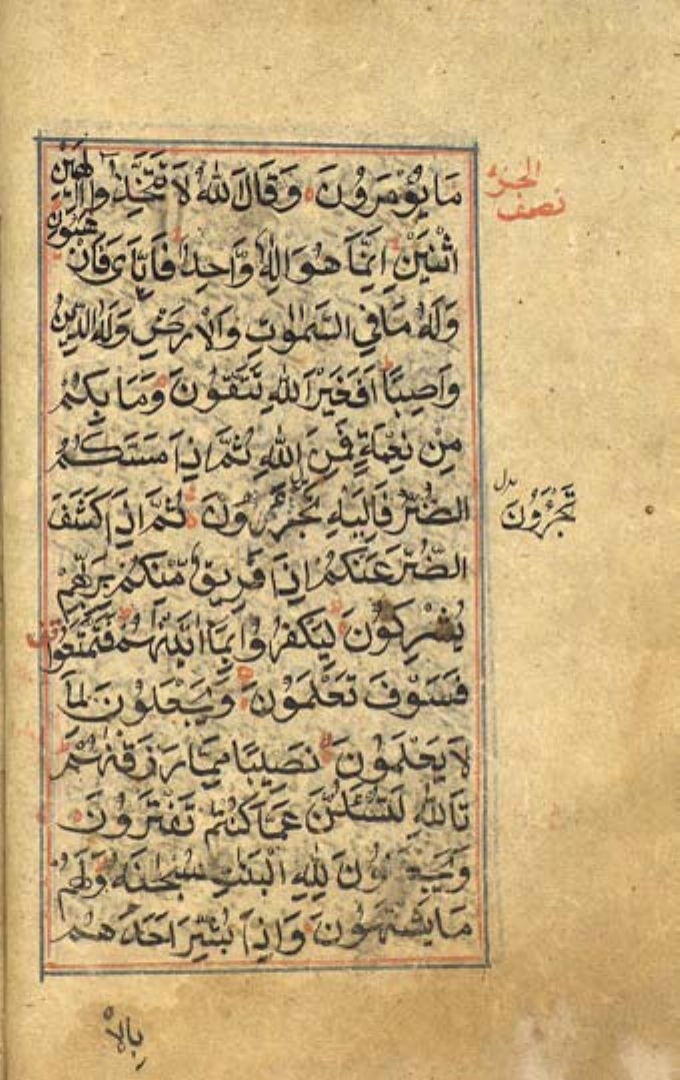 مَا يُؤْمَرُونَ وَقَالَ اللّٰهُ لَا تَتَّخِذُوا اِلٰهَيْنِ
اثْنَيْنِ اِنَّمَا هُوَ اِلٰهٌ وَّاحِدٌ فَاِيَّايَ فَارْهَبُوْنِ
وَلَهُ مَا فِي السَّمٰوٰتِ وَالْاَرْضِ وَلَهُ الدِّيْنُ
وَاصِبًا اَفَغَيْرَ اللّٰهِ تَتَّقُوْنَ وَمَا بِكُمْ
مِنْ نِعْمَةٍ فَمِنَ اللّٰهِ ثُمَّ اِذَا مَسَّكُمُ
الضُّرُّ فَاِلَيْهِ تَجْـَٔرُوْنَ ثُمَّ اِذَا كَشَفَ
الضُّرَّ عَنْكُمْ اِذَا فَرِيْقٌ مِّنْكُمْ بِرَبِّهِمْ
يُشْرِكُوْنَ لِيَكْفُرُوا بِمَا اٰتَيْنٰهُمْ فَتَمَتَّعُوْا
فَسَوْفَ تَعْلَمُوْنَ وَيَجْعَلُوْنَ لِمَا
لَا يَعْلَمُوْنَ نَصِيْبًا مِمَّا رَزَقْنٰهُمْ
تَاللّٰهِ لَتُسْـَٔلُنَّ عَمَّا كُنْتُمْ تَفْتَرُوْنَ
وَيَجْعَلُوْنَ لِلّٰهِ الْبَنٰتِ سُبْحٰنَهُ وَلَهُمْ
مَا يَشْتَهُوْنَ وَاِذَا بُشِّرَ اَحَدُهُمْ
بِالْاُ
نصف
الحزب
بدل
تَجْـَٔرُوْنَ